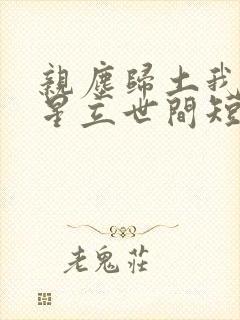 親塵歸土我
星立世間短
老鬼莊